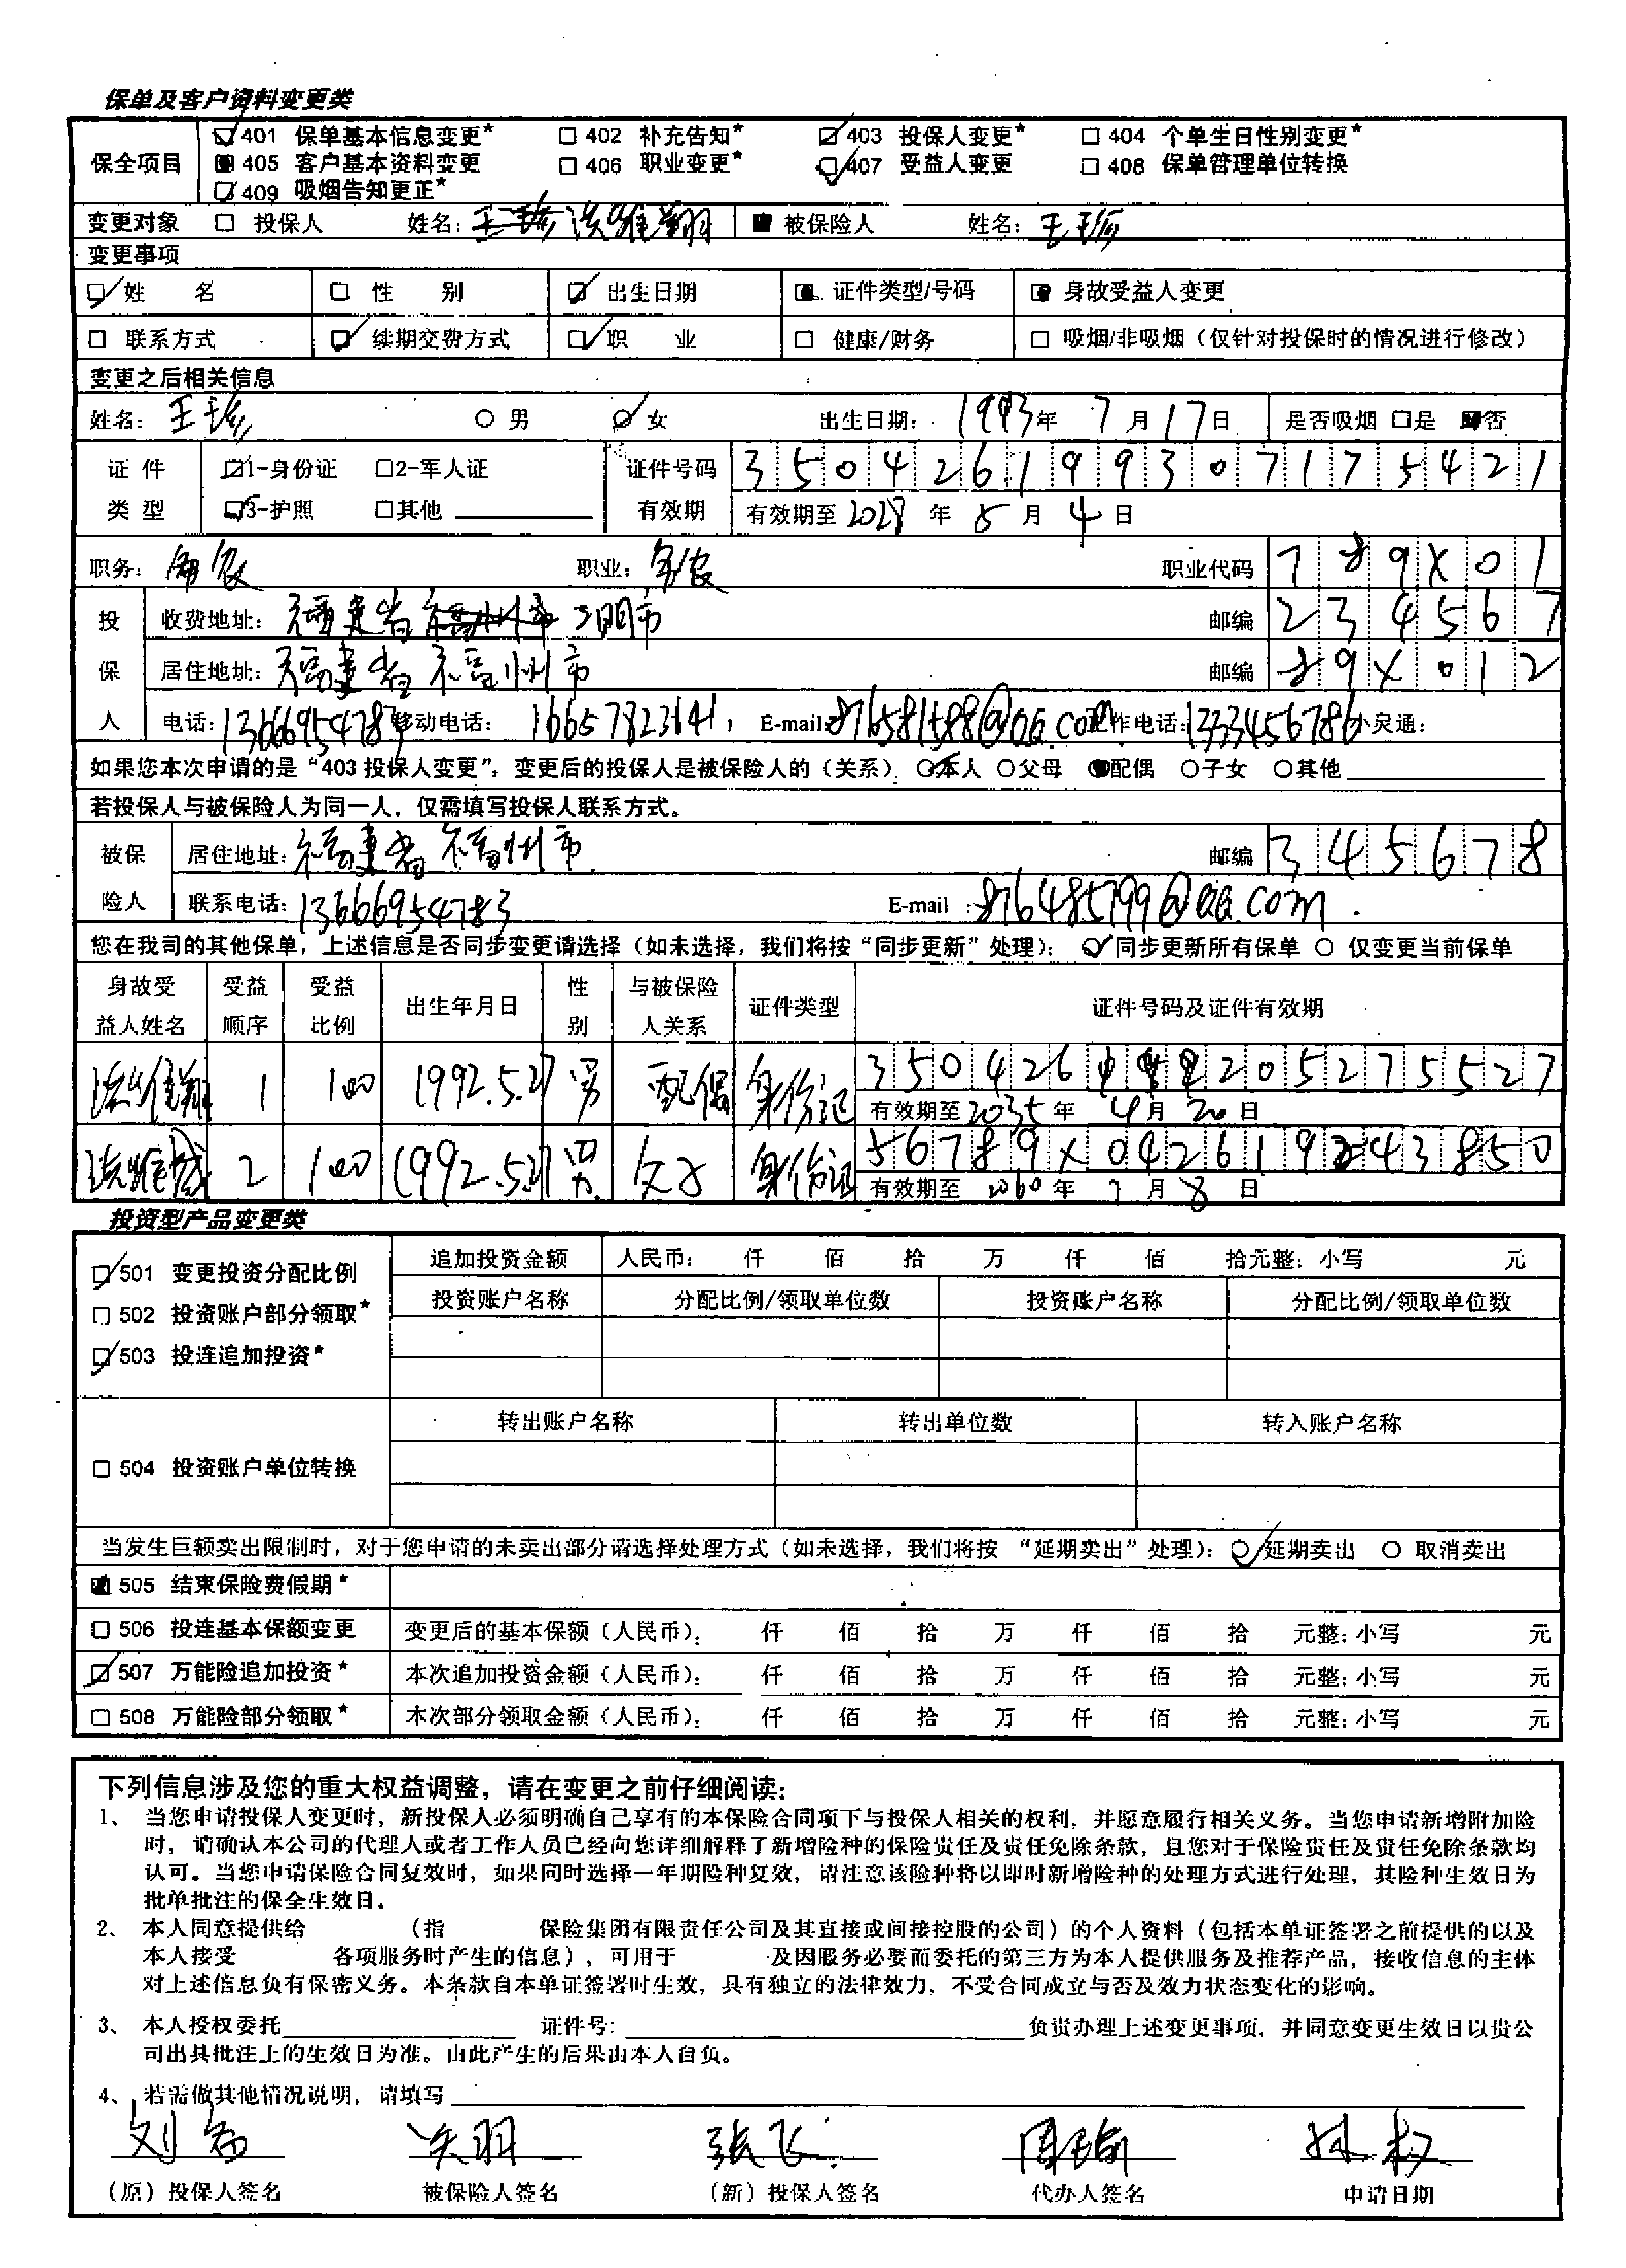 保单及客户资料变更类
保全项目
401 保单基本信息变更* 402 补充告知* 403 投保人变更* 404 个单生日性别变更*
405 客户基本资料变更 406 职业变更* 407 受益人变更 408 保单管理单位转换
409 吸烟告知更正*
变更对象 投保人 姓名: 洪维翔 被保险人 姓名:
变更事项
姓 名 性 别 出生日期 证件类型/号码 身故受益人变更
联系方式 续期交费方式 职 业 健康/财务 吸烟/非吸烟(仅针对投保时的情况进行修改)
变更之后相关信息
姓名: 男 女 出生日期: 1993年 7月17日 是否吸烟 是 否
证件 1-身份证 2-军人证 证件号码 350426199307175421
类型 3-护照 其他 有效期 有效期至2028年8月4日
职务: 务农 职业: 务农 职业代码 789X01
投 收费地址: 福建省 三明市 邮编 234567
保 居住地址: 福建省福州市 邮编 89X012
人 电话: 13666954783 移动电话: 16657823641 E-mail: 876581588@QQ.com 工作电话: 1333456786 小灵通:
如果您本次申请的是“403 投保人变更”,变更后的投保人是被保险人的(关系) 本人 父母 配偶 子女 其他
若投保人与被保险人为同一人,仅需填写投保人联系方式。
被保 居住地址: 福建省福州市 邮编 345678
险人 联系电话: 13666954783 E-mail : 876485799@QQ.com
您在我司的其他保单,上述信息是否同步变更请选择(如未选择,我们将按“同步更新”处理): 同步更新所有保单 仅变更当前保单
身故受益人姓名 受益顺序 受益比例 出生年月日 性别 与被保险人关系 证件类型 证件号码及证件有效期
洪维翔 1 100 1992.5.27 男 配偶 身份证 350426199205275527
有效期至2035年4月20日
洪维城 2 100 1992.5.27 男 父子 身份证 56789X042619243850
有效期至2060年7月8日
投资型产品变更类
501 变更投资分配比例
502 投资账户部分领取*
503 投连追加投资*
追加投资金额 人民币: 仟 佰 拾 万 仟 佰 拾元整;小写 元
投资账户名称 分配比例/领取单位数 投资账户名称 分配比例/领取单位数
504 投资账户单位转换 转出账户名称 转出单位数 转入账户名称
当发生巨额卖出限制时,对于您申请的未卖出部分请选择处理方式(如未选择,我们将按 “延期卖出”处理): 延期卖出 取消卖出
505 结束保险费假期*
506 投连基本保额变更 变更后的基本保额(人民币): 仟 佰 拾 万 仟 佰 拾 元整;小写 元
507 万能险追加投资* 本次追加投资金额(人民币): 仟 佰 拾 万 仟 佰 拾 元整;小写 元
508 万能险部分领取* 本次部分领取金额(人民币): 仟 佰 拾 万 仟 佰 拾 元整;小写 元
下列信息涉及您的重大权益调整,请在变更之前仔细阅读:
1、 当您申请投保人变更时,新投保人必须明确自己享有的本保险合同项下与投保人相关的权利,并愿意履行相关义务。当您申请新增附加险
时,请确认本公司的代理人或者工作人员已经向您详细解释了新增险种的保险责任及责任免除条款,且您对于保险责任及责任免除条款均
认可。当您申请保险合同复效时,如果同时选择一年期险种复效,请注意该险种将以即时新增险种的处理方式进行处理,其险种生效日为
批单批注的保全生效日。
2、 本人同意提供给 (指 保险集团有限责任公司及其直接或间接控股的公司)的个人资料(包括本单证签署之前提供的以及
本人接受 各项服务时产生的信息),可用于 及因服务必要而委托的第三方为本人提供服务及推荐产品,接收信息的主体
对上述信息负有保密义务。本条款自本单证签署时生效,具有独立的法律效力,不受合同成立与否及效力状态变化的影响。
3、 本人授权委托 证件号: 负责办理上述变更事项,并同意变更生效日以贵公
司出具批注上的生效日为准。由此产生的后果由本人自负。
4、 若需做其他情况说明,请填写
刘备 关羽 张飞 周瑜 孙权
(原)投保人签名 被保险人签名 (新)投保人签名 代办人签名 申请日期